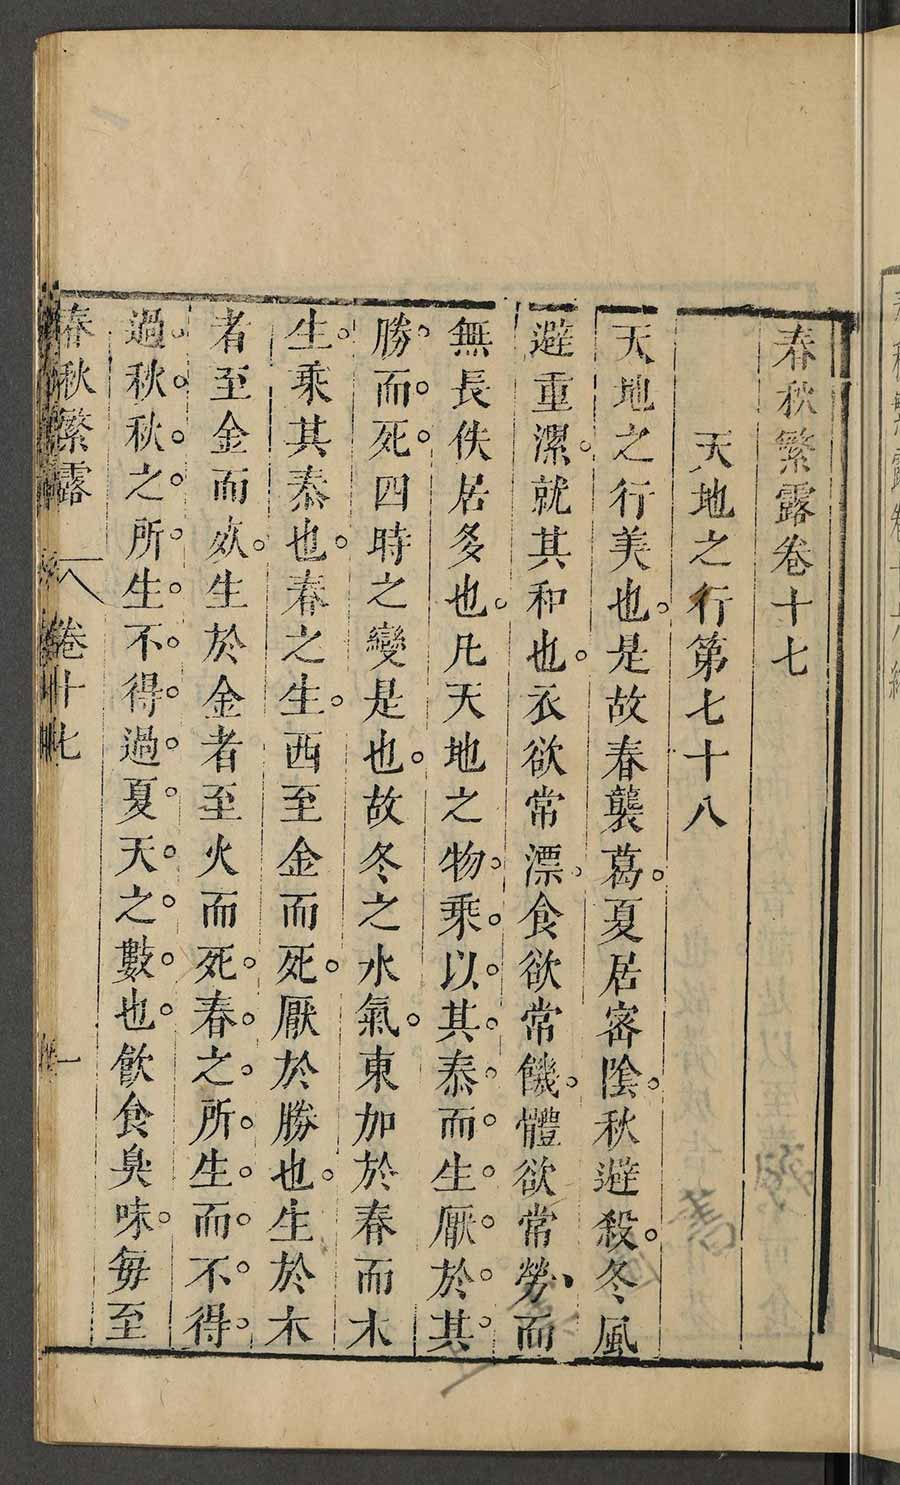 春秋繁露卷十七
天地之行第七十八
天地之行美也。是故春襲葛。夏居密陰。秋避殺。冬風
避重漯。就其和也。衣欲常漂。食欲常饑。體欲常勞、而
無長佚居多也。凡天地之物。乘。以。其。泰。而。生。厭。於。其。
勝。而。死。四時之變是也。故冬之水氣。東加於春而木
生。乘其泰也。春之生。西至金而死。厭於勝也。生於木
者至金而死。生於金者至火而死。春。之。所。生。而。不。得。
過。秋。秋。之。所。生。不。得。過。夏。天。之。數。也。飲食臭味。每至
春秋繁露 卷十七 一